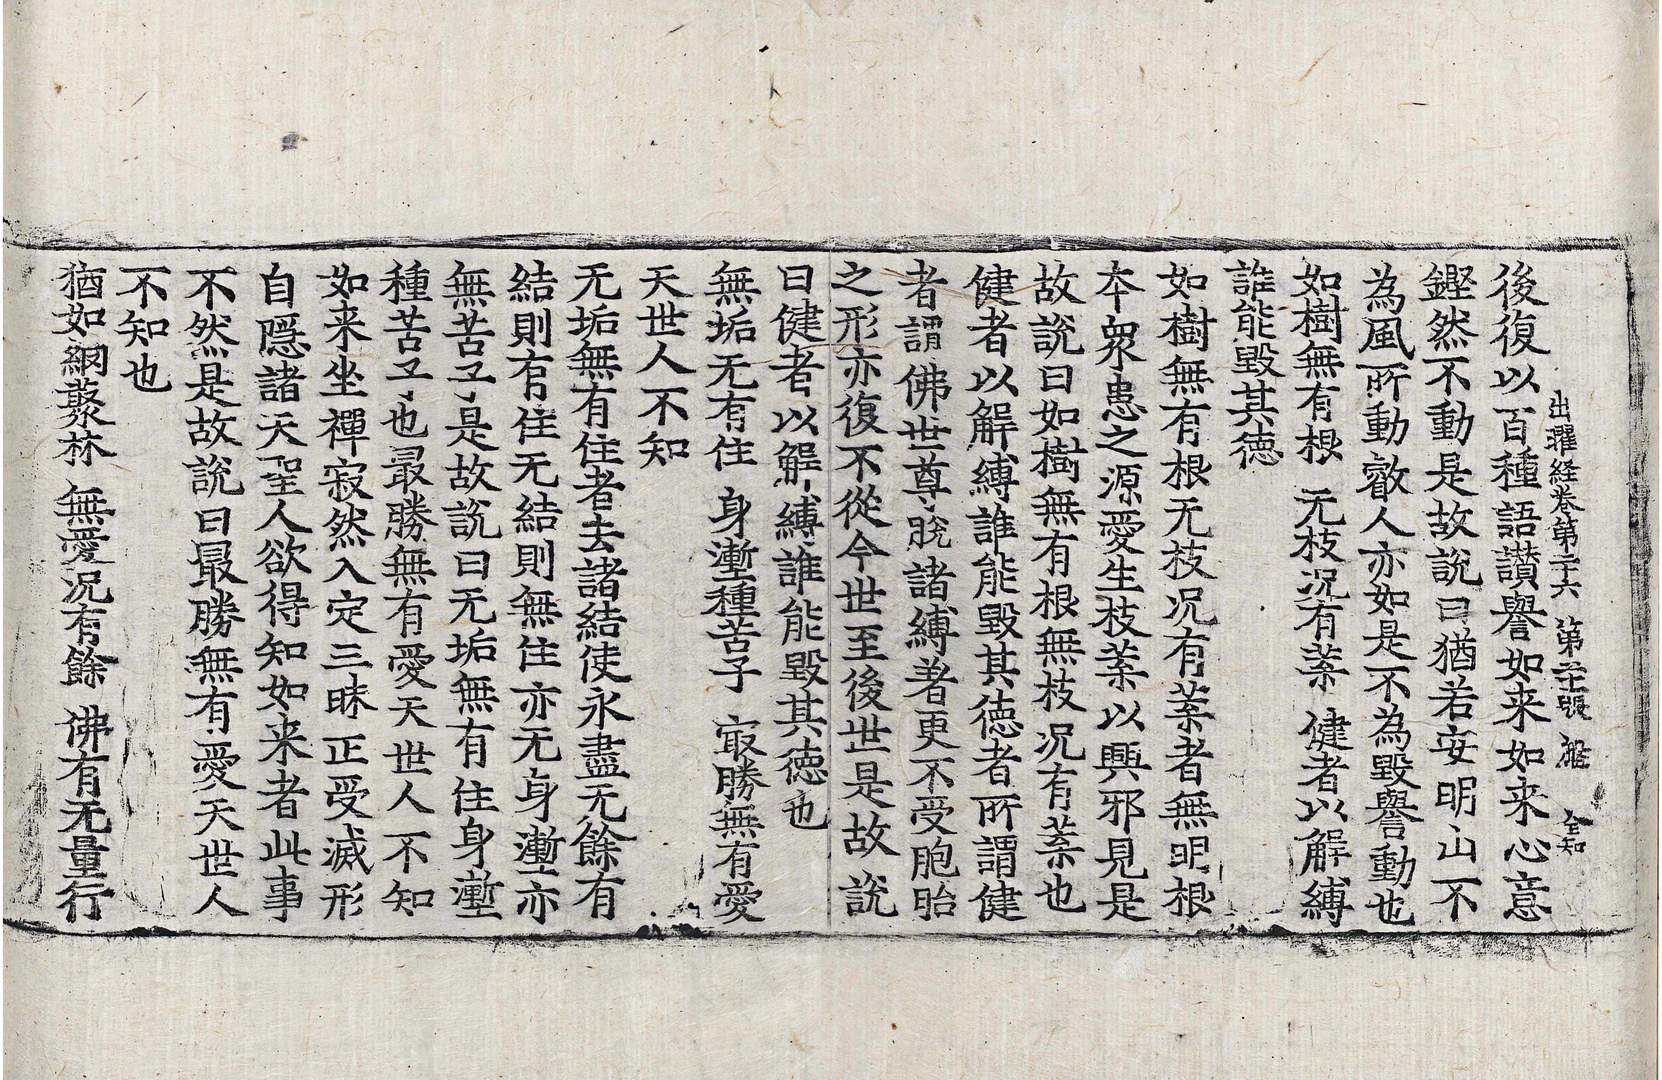 出曜経卷第二十六 第二十張 雕 全知
後復以百種語讃譽如来如来心意
鏗然不動是故説曰猶若安明山不
為風所動叡人亦如是不為毀譽動也
如樹無有根 无枝况有葉 健者以解縛
誰能毀其德
如樹無有根无枝况有葉者無明根
本衆患之源愛生枝葉以興邪見是
故說曰如樹無有根無枝况有葉也
健者以解縛誰能毀其德者所謂健
者謂佛世尊脫諸縛著更不受胞胎
之形亦復不從今世至後世是故說
曰健者以解縛誰能毀其德也
無垢无有住 身壍種苦子 冣勝無有愛
天世人不知
无垢無有住者去諸結使永盡无餘有
結則有住无結則無住亦无身壍亦
無苦子是故說曰无垢無有住身壍
種苦子也最勝無有愛天世人不知
如来坐禪寂然入定三昧正受滅形
自隱諸天聖人欲得知如来者此事
不然是故說曰最勝無有愛天世人
不知也
猶如網藂林 無愛况有餘 佛有无量行